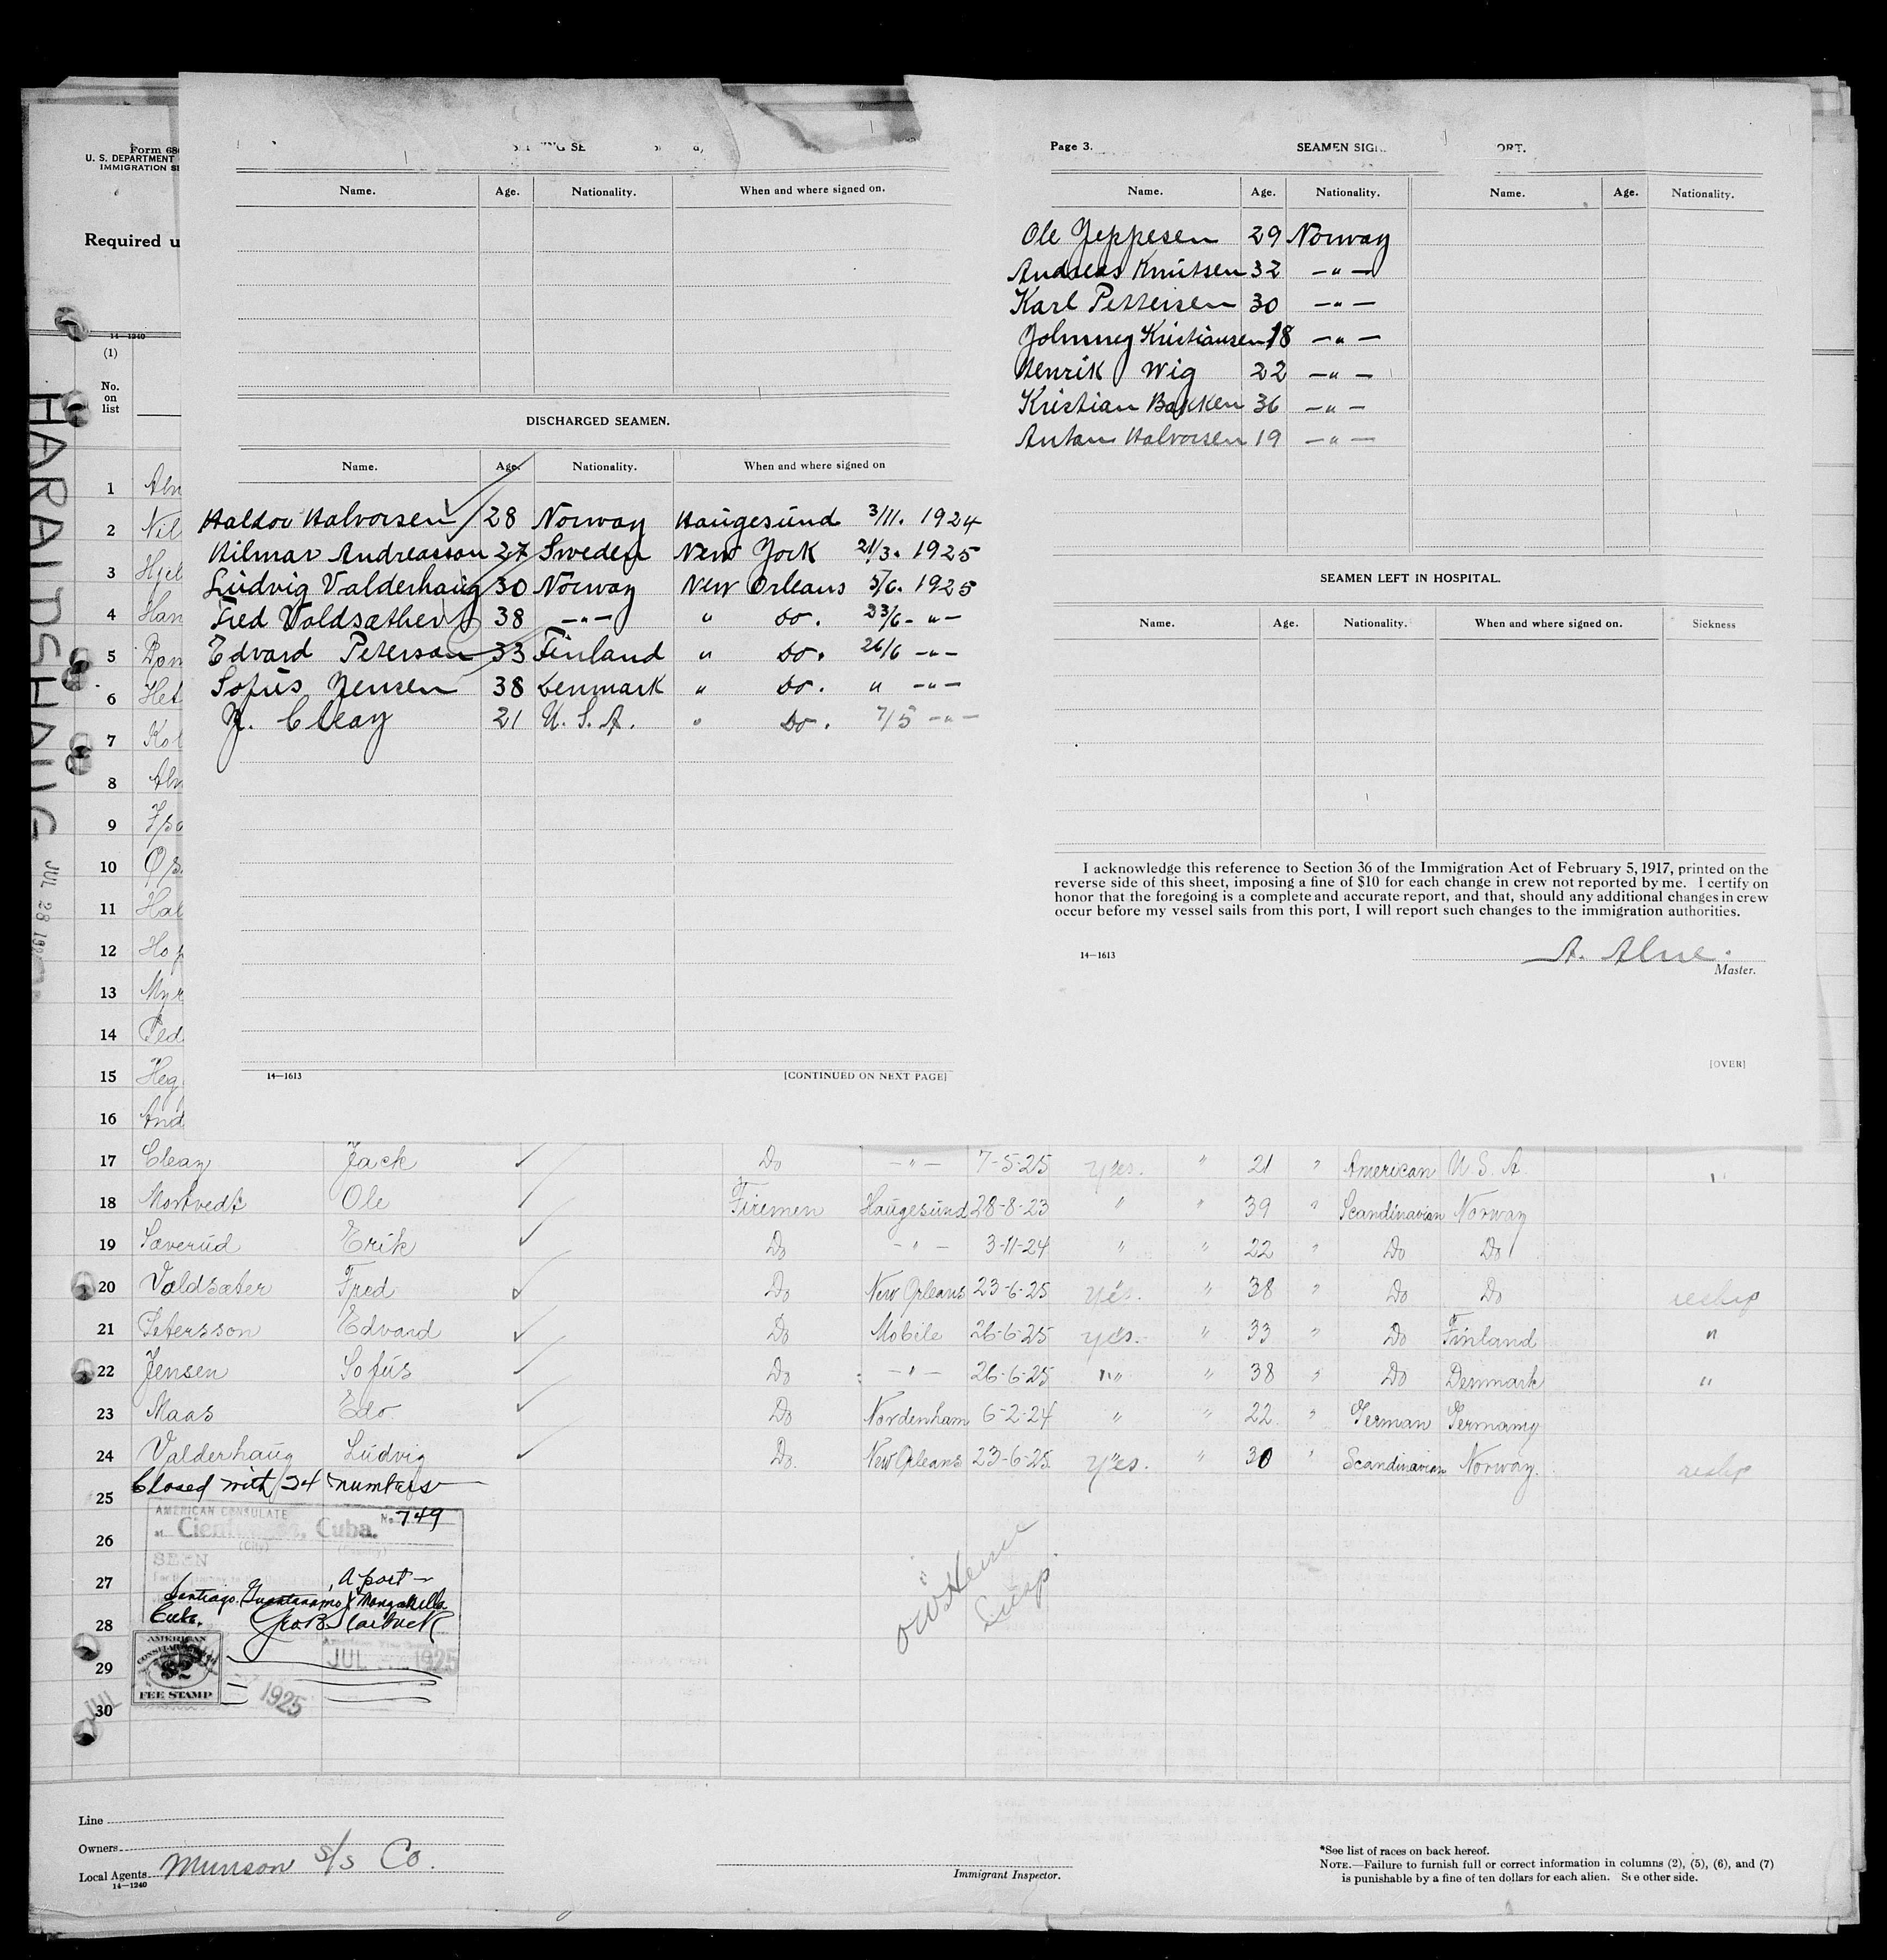 Form 68
U. S. DEPARTMENT
IMMIGRATION SE
Required u
14—1240
(1)
No.
on
list
HARALDSHAUG
JUL 28 192
1 Aln
2 Nil
3 Hjel
4 Han
5 Dan
6 Het
7 Kol
8 Aln
9
10
11 Hal
12 Hop
13 Myr
14 Ped
15 Heg
16 And
Name. Age. Nationality. When and where signed on.
DISCHARGED SEAMEN.
Name. Age. Nationality. When and where signed on
Haldor Halvorsen 28 Norway Haugesund 3/11. 1924
Hilmar Andreasson 27 Sweden New York 21/3. 1925
Ludvig Valderhaug 30 Norway New Orleans 5/6. 1925
Fred Valdsæther 38 —"— " Do. 23/6- "—
Edvard Peterson 33 Finland " Do. 26/6 —"—
Sofus Jensen 38 Denmark " Do. " —"—
J. Cleay 21 U. S. A. " Do. 7/5 —"—
14—1613 [CONTINUED ON NEXT PAGE]
Page 3. SEAMEN SIG ORT.
Name. Age. Nationality. Name. Age. Nationality.
Ole Jeppesen 29 Norway
Andreas Knutsen 32 —"—
Karl Pettersen 30 —"—
Johnney Kristiansen 18 —"—
Henrik Wig 22 —"—
Kristian Bakken 36 —"—
Anton Halvorsen 19 —"—
SEAMEN LEFT IN HOSPITAL.
Name. Age. Nationality. When and where signed on. Sickness
I acknowledge this reference to Section 36 of the Immigration Act of February 5, 1917, printed on the
reverse side of this sheet, imposing a fine of $10 for each change in crew not reported by me. I certify on
honor that the foregoing is a complete and accurate report, and that, should any additional changes in crew
occur before my vessel sails from this port, I will report such changes to the immigration authorities.
14—1613 A. Alne.
Master.
[OVER]
17 Cleay Jack Do —"— 7-5-25 yes. " 21 " American U. S. A. "
18 Mortvedt Ole Firemen Haugesund 28-8-23 " " 39 " Scandinavian Norway
19 Sæverud Erik Do —"— 3-11-24 " " 22 " Do Do
20 Valdsæter Fred Do New Orleans 23-6-25 yes. " 38 " Do Do reship
21 Petersson Edvard Do Mobile 26-6-25 yes. " 33 " Do Finland "
22 Jensen Sofus Do —"— 26-6-25 " " 38 " Do Denmark "
23 Maas Edo. Do Nordenham 6-2-24 " " 22 " German Germany
24 Valderhaug Ludvig Do. New Orleans 23-6-25 yes. " 30 " Scandinavian Norway. reship
Closed with 24 numbers
25
AMERICAN CONSULATE No. 749
at Cienfuegos, Cuba.
26 (City)
SEEN
27 A port
Santiago. Guantanamo & Manzanillo
28 Cuba.
AMERICAN
CONSULAR
29 JUL 1925
$2
FEE STAMP
1925
JUL
30
Insp.
Line
Owners
Local Agents Munson S/S Co.
14—1240
Immigrant Inspector.
*See list of races on back hereof.
NOTE.—Failure to furnish full or correct information in columns (2), (5), (6), and (7)
is punishable by a fine of ten dollars for each alien. See other side.